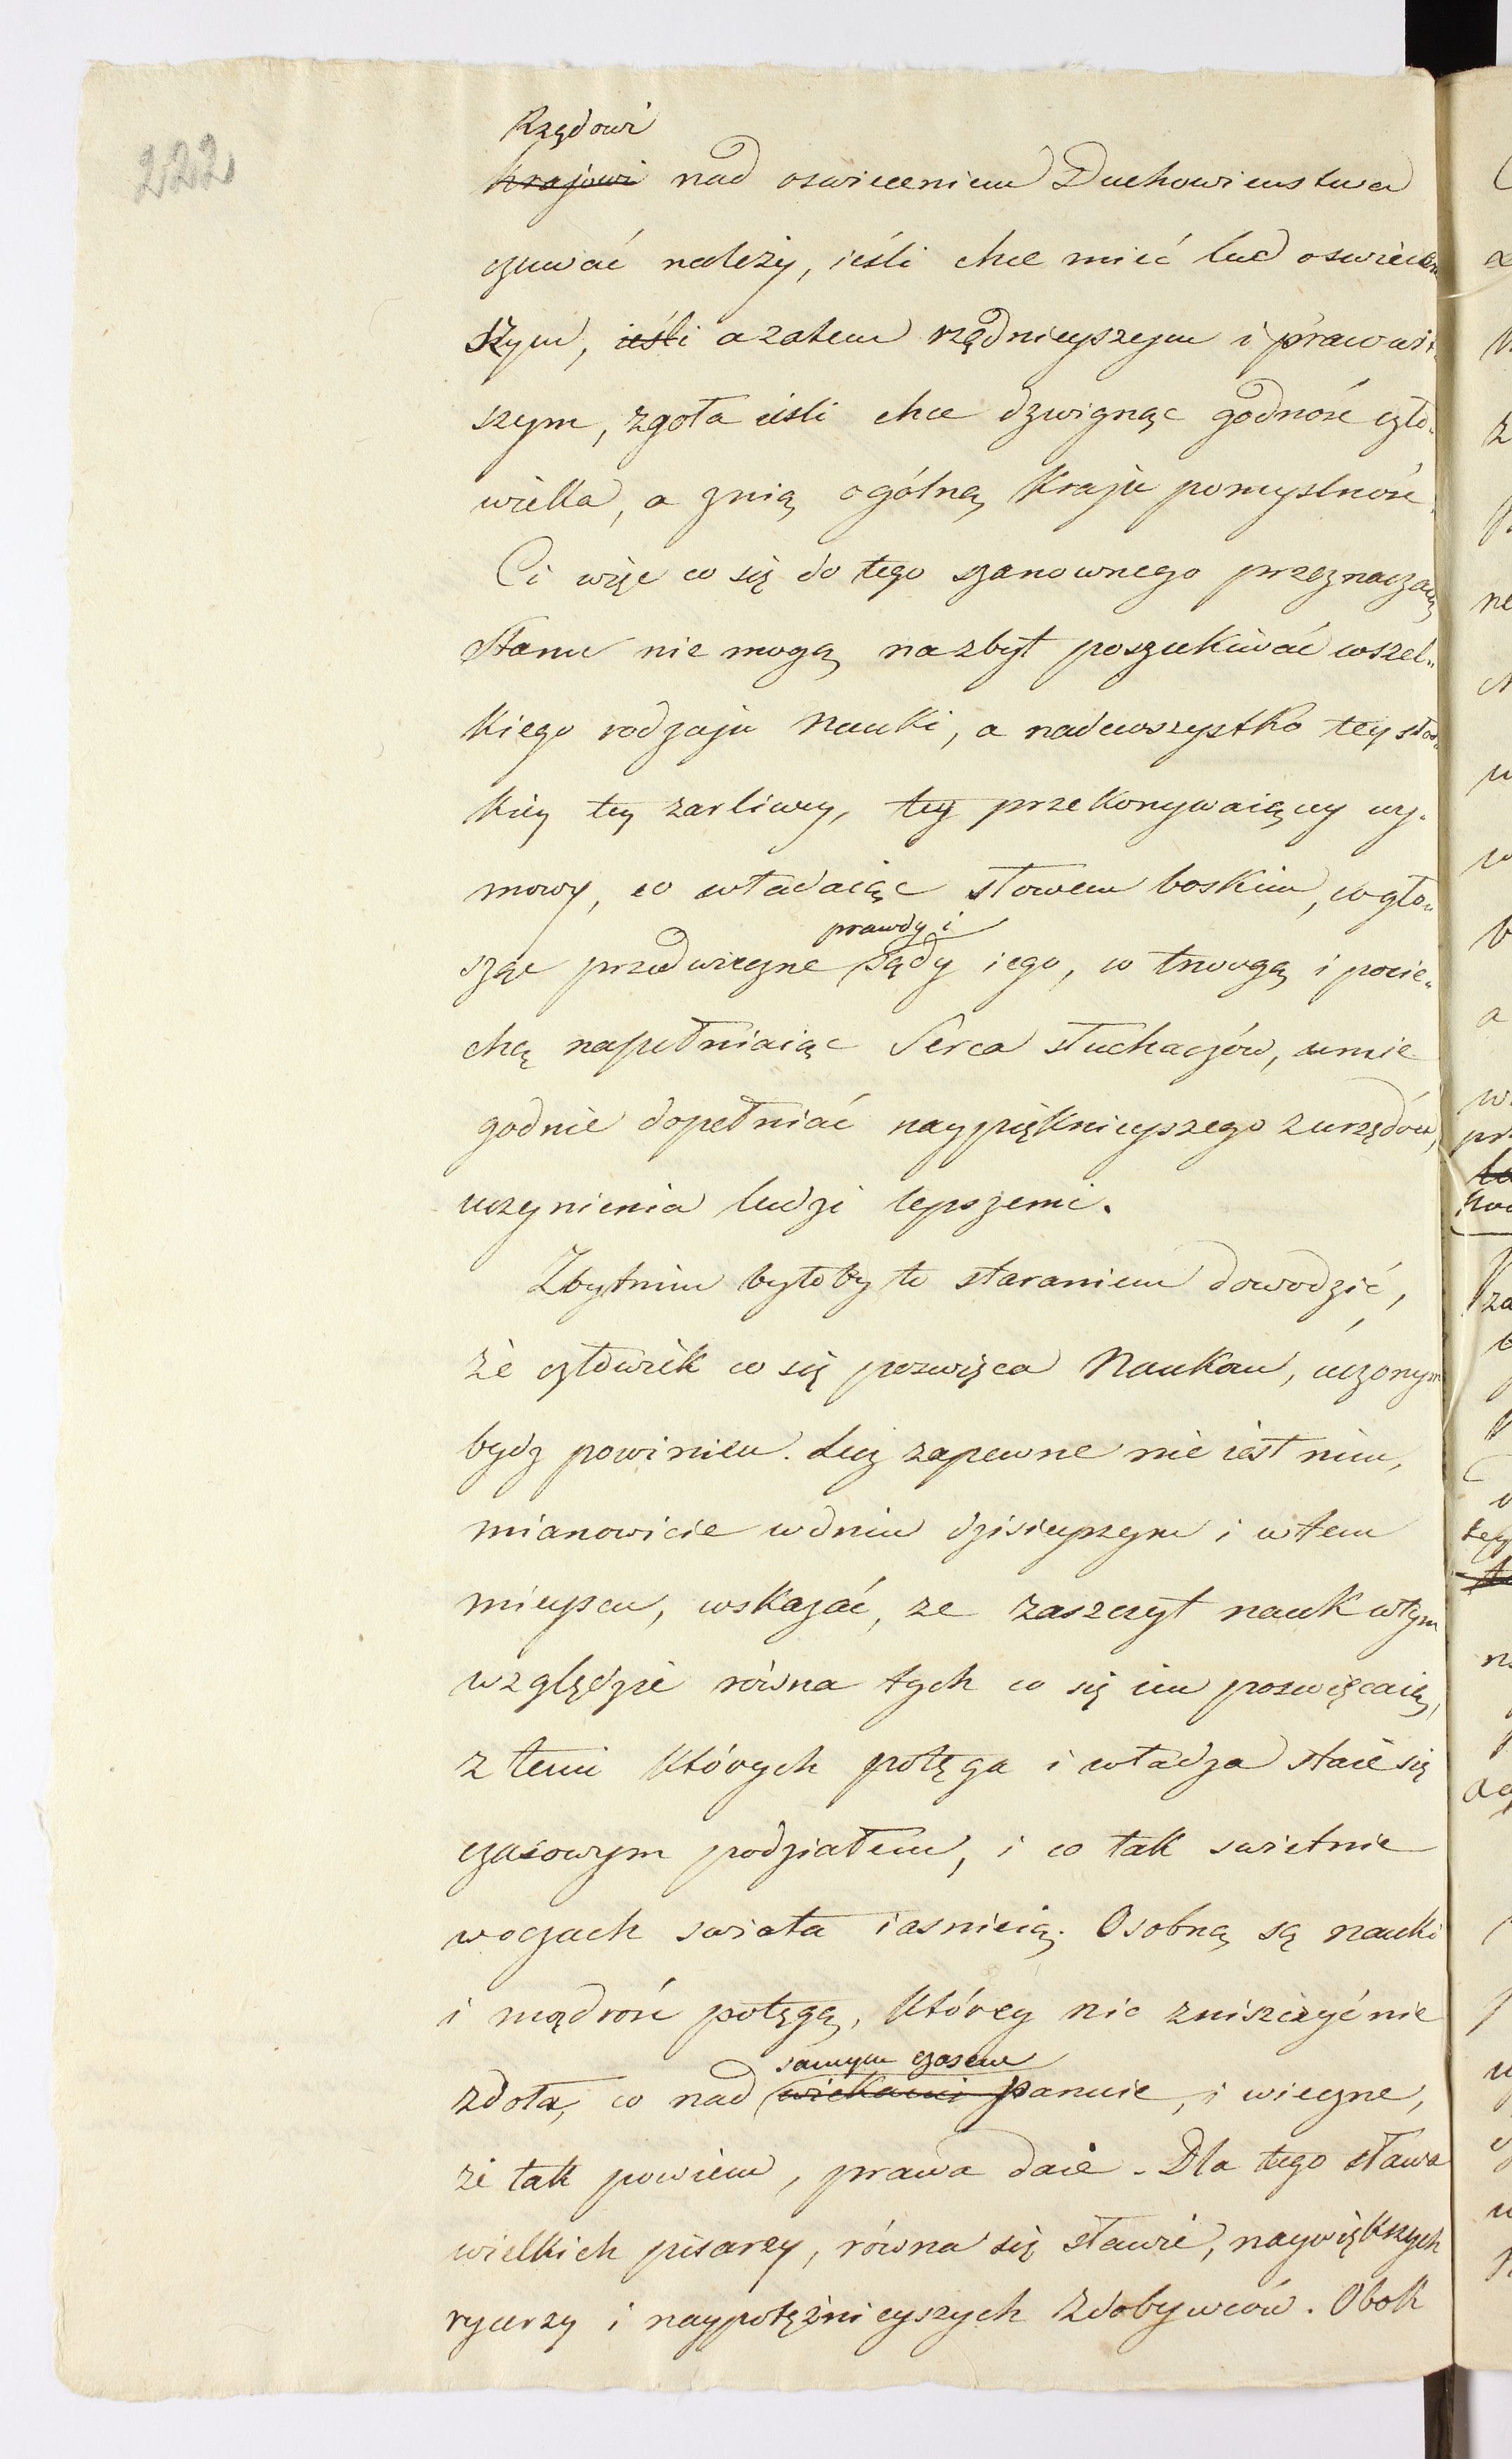 222
Rządowi
~~krajowi~~ nad oswieceniem Duchowienstwa
czuwać należy, iéśli chce mieć lud oswiecen
szym, ~~ieśli~~ a zatem rządnieyszym i prawwi-
szym, zgoła ieśli chce dzwignąc godność czło-
wieka, a znią ogólną Kraju pomyslność.
Ci więc co się do tego szanownego przeznaczaią
Stanu nie mogą nazbyt poszukiwać wszel-
kiego rodzaju Nauki, a nadewszystko tey słod
kiey tey żarliwey, tey przekonywaiącey wy-
mowy, co władaiąc słowem boskim, co gło-
prawdy i
sząc przedwieczne sądy iego, co trwogą i pocie-
chą napełniaiąc Serca słuchaczów, umie
godnie dopełniać naypięknieyszego z urzędów,
uczynienia ludzi lepszemi.
Zbytnim byłoby to staraniem dowodzić,
że człowiek co się poswięca Naukom, uczonym
bydz powinien. Lecz zapewne nie iest nim,
mianowicie w dniu dzisieyszym i w tem
mieyscu, wskazać, ze zaszczyt nauk w tym
względzie równa tych co się im poswięcaią,
z temi których potęga i władza staie się
czasowym podziałem, i co tak swietnie
w oczach swiata iasnieią. Osobną są nauki
i mądrość potęgą, którey nic zniszczyć nie
samym czasem
zdoła, co nad ~~wiekami~~ panuie, i wieczne,
że tak powiem, prawa daie. Dla tego sława
wielkich pisarzy, równa się sławie, naywiększych
rycerzy i naypotężnieyszych Zdobywców. Obok